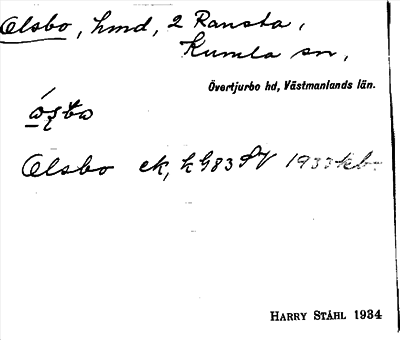 Olsbo, hmd, 2 Ransta,
Kumla sn,
Övertjurbo hd, Västmanlands län.
Olsbo ek, k G83 SV 1933 kb.
HARRY STÅHL 1934